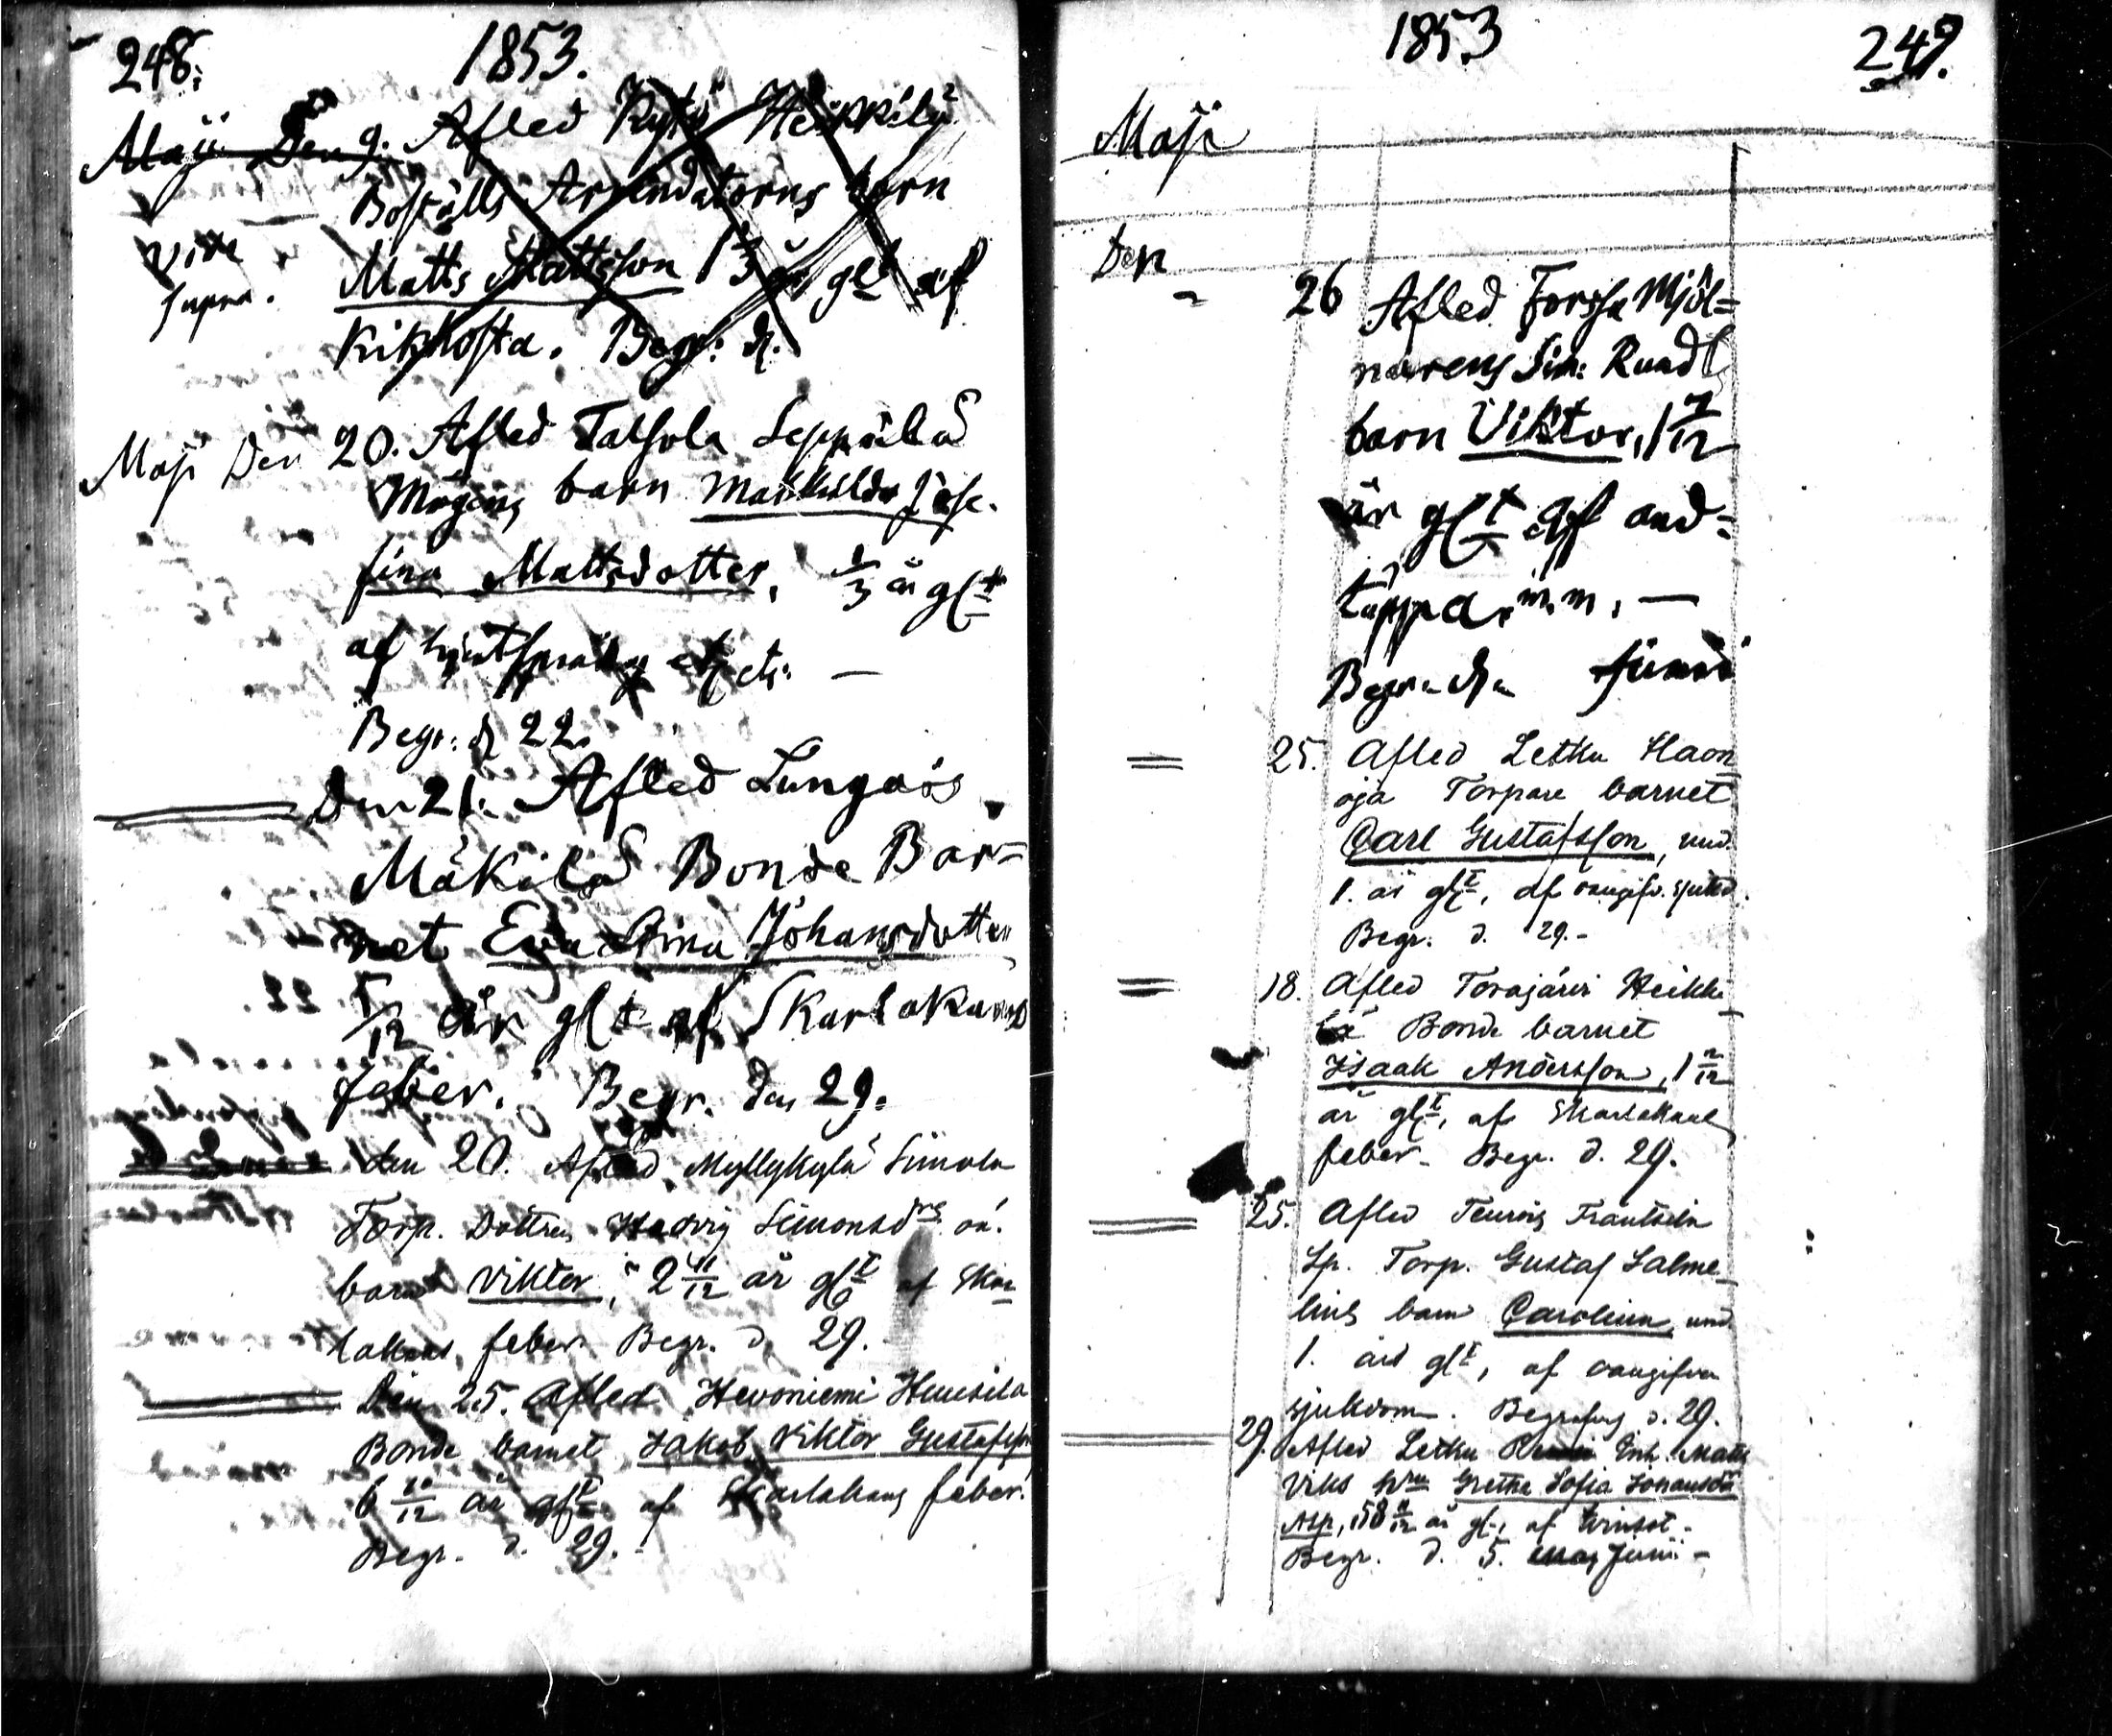 248.
1853.
Maji Den 9. Afled Kytö Heikkilä
Boställs Arrendatorns barn
vide
Matts Mattsson 1 1/3 år gl.t af
supra.
Kikhosta. Begr: d.
Maji Den 20. Afled Talsola Seppälä
Mågens barn Jose-
fina Mattsdotter, 1/3 år glt
af
Begr: d 22.
Den 21. Afled Lungois
Mäkilä Bonde Bar-
net Eva Stina Johansdotter
5/12 år glt af Skarlakans
feber. Begr. den 29.
den 20. Afled Myllykylä Simola
Torp. Dottren Hedvig Simonsdrs oä.
barn Viktor, 2 11/12 år glt af Skar-
lakans feber Begr. d. 29.
Den 25. Afled Hevoniemi Huusila
Bonde barnet Jakob Viktor Gustafsson
6 10/12 år glt af Skarlakans feber.
Begr. d. 29.
1853
249.
Maji
Den
26 Afled Forssa Mjöl-
narens Sim: Rund
barn Viktor, 1 7/12
år glt af and-
täppa, m.m. —
Begr. d. Junii
25. Afled Letku Haon
oja Torpare barnet
Carl Gustafsson, und.
1. år glt, af oangifv. sjukd.
Begr. d. 29.-
18. Afled Torajärvi Heikki-
lä Bonde barnet
Isaak Andersson, 1 2/12
år glt, af Skarlakans
feber. Begr. d. 29.
25. Afled Teurois Frantsila
Sp. Torp. Gustaf Salme-
lins barn Carolina, und
1. års glt, af oangifven
sjukdom. Begrafves d. 29.
29. Afled Letku Enk. Matts
Viks Gretha Sofia Johansdr
Asp, 58 11/12 år gl., af tvinsot.
Begr. d. 5. Junii -